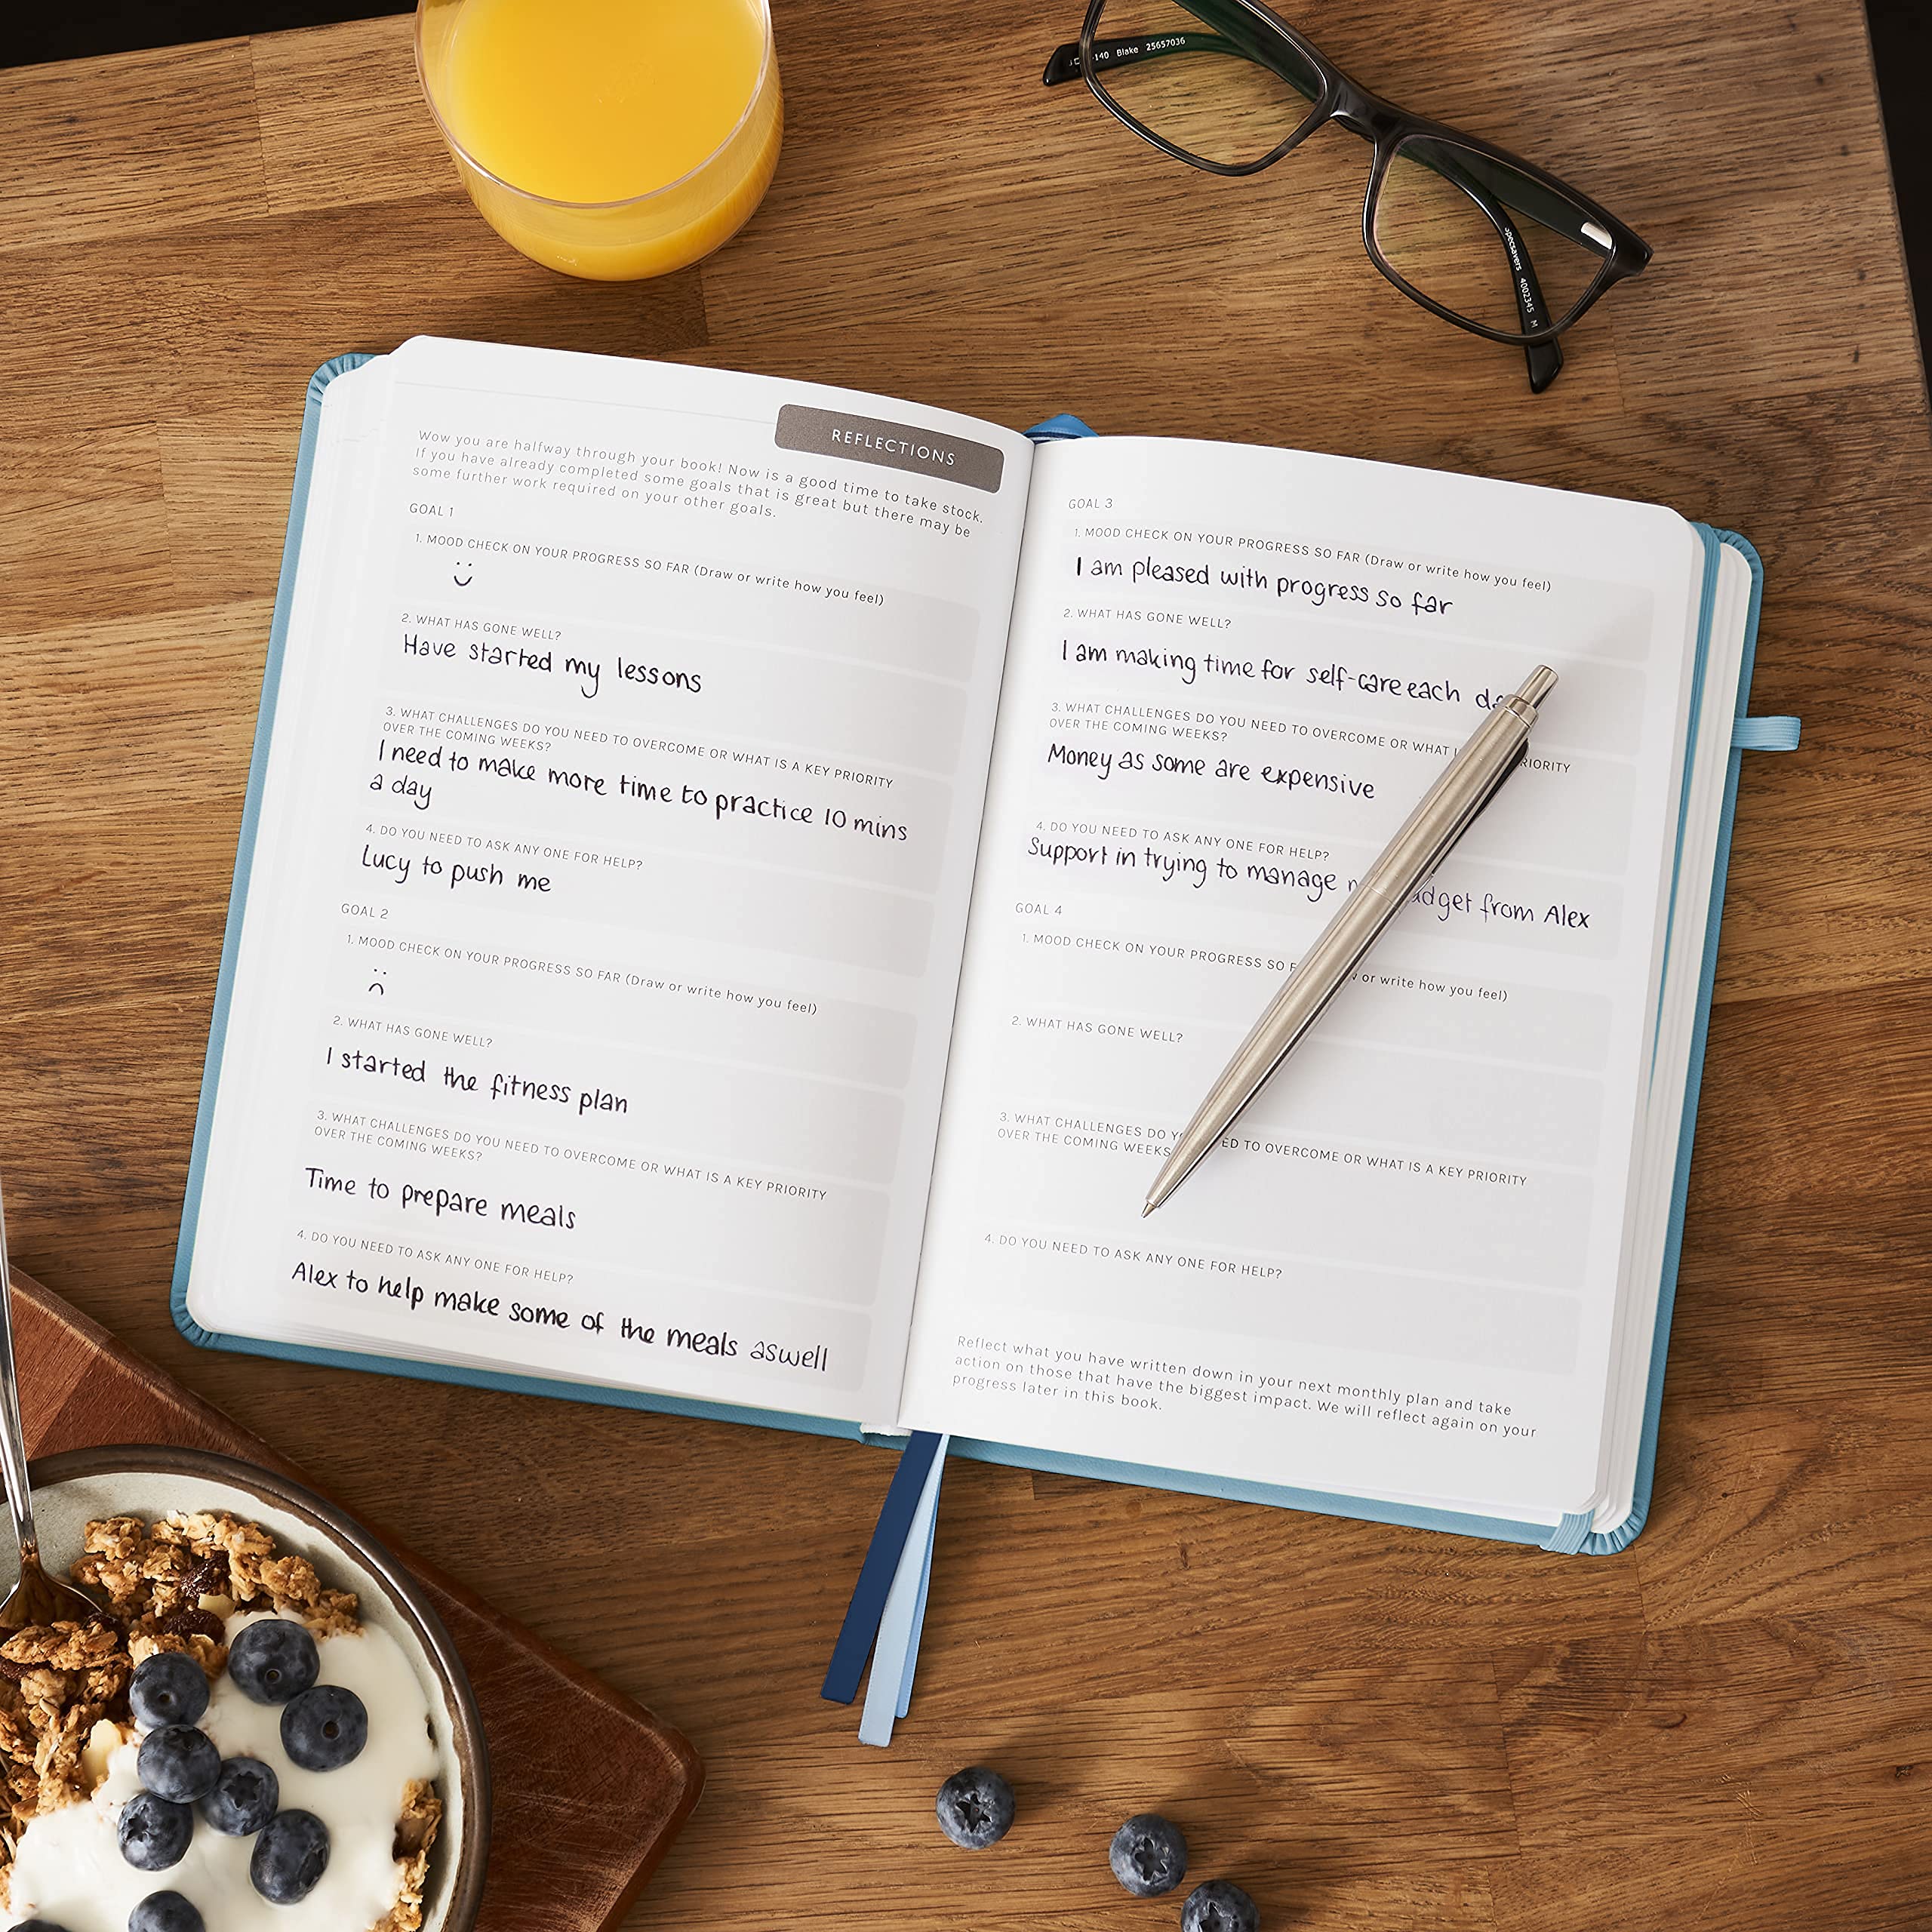 140 Blake 25657036
Specsavers 4002345 M
REFLECTIONS
Wow you are halfway through your book! Now is a good time to take stock.
If you have already completed some goals that is great but there may be
some further work required on your other goals.
GOAL 1
1. MOOD CHECK ON YOUR PROGRESS SO FAR (Draw or write how you feel)
2. WHAT HAS GONE WELL?
Have started my lessons
3. WHAT CHALLENGES DO YOU NEED TO OVERCOME OR WHAT IS A KEY PRIORITY
OVER THE COMING WEEKS?
I need to make more time to practice 10 mins
a day
4. DO YOU NEED TO ASK ANY ONE FOR HELP?
Lucy to push me
GOAL 2
1. MOOD CHECK ON YOUR PROGRESS SO FAR (Draw or write how you feel)
2. WHAT HAS GONE WELL?
I started the fitness plan
3. WHAT CHALLENGES DO YOU NEED TO OVERCOME OR WHAT IS A KEY PRIORITY
OVER THE COMING WEEKS?
Time to prepare meals
4. DO YOU NEED TO ASK ANY ONE FOR HELP?
Alex to help make some of the meals aswell
GOAL 3
1. MOOD CHECK ON YOUR PROGRESS SO FAR (Draw or write how you feel)
I am pleased with progress so far
2. WHAT HAS GONE WELL?
I am making time for self-care each
3. WHAT CHALLENGES DO YOU NEED TO OVERCOME OR WHAT
OVER THE COMING WEEKS?
Money as some are expensive
4. DO YOU NEED TO ASK ANY ONE FOR HELP?
Support in trying to manage from Alex
GOAL 4
1. MOOD CHECK ON YOUR PROGRESS SO or write how you feel)
2. WHAT HAS GONE WELL?
3. WHAT CHALLENGES DO TO OVERCOME OR WHAT IS A KEY PRIORITY
OVER THE COMING WEEKS
4. DO YOU NEED TO ASK ANY ONE FOR HELP?
Reflect what you have written down in your next monthly plan and take
action on those that have the biggest impact. We will reflect again on your
progress later in this book.